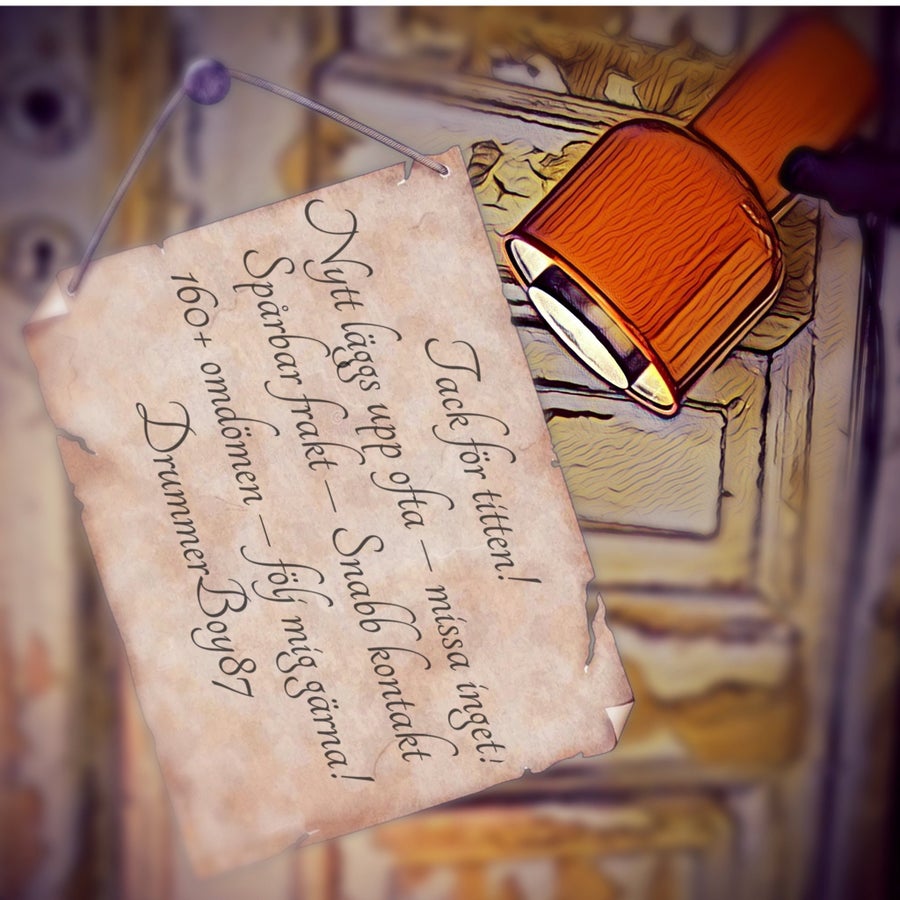 Tack för titten!
Nytt läggs upp ofta – missa inget!
Spårbar frakt – Snabb kontakt
160+ omdömen – följ mig gärna!
DrummerBoy87